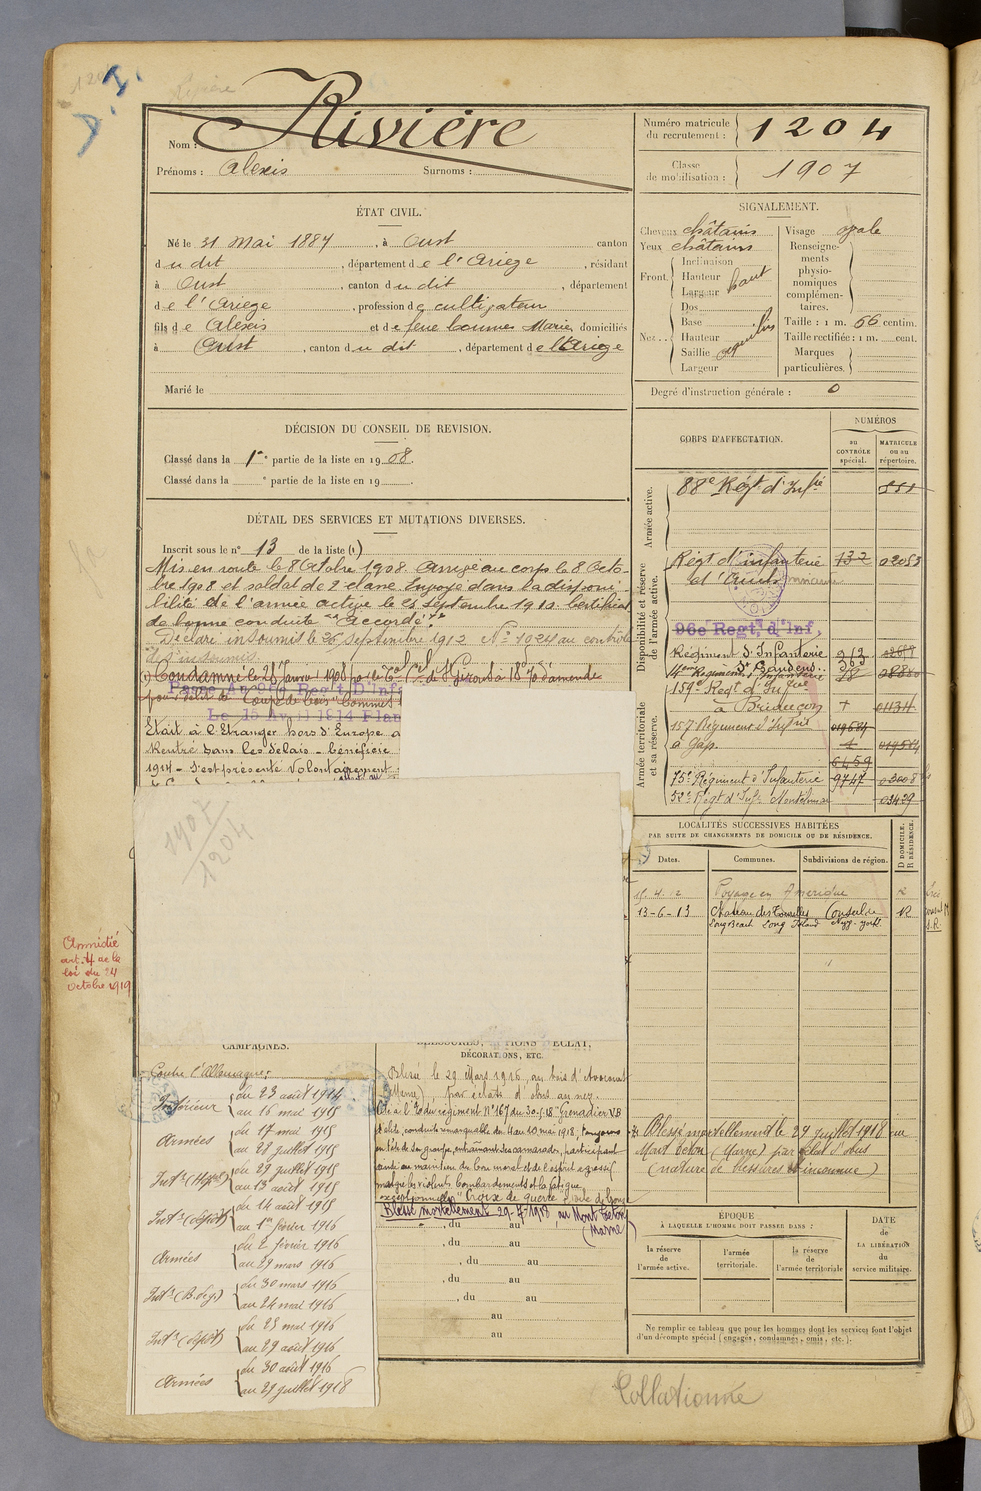 D. I.
Nom : Rivière
Prénoms : Alexis Surnoms :
Numéro matricule du recrutement : 1204
Classe de mobilisation : 1907
ÉTAT CIVIL.
Né le 31 Mai 1887, à Oust canton
du dit, département de l'Ariège, résidant
à Oust, canton du dit, département
de l'Ariège, profession de cultivateur
fils de Alexis et de feue Loumes Marie, domiciliés
à Oust, canton du dit, département de l'Ariège
Marié le
SIGNALEMENT.
Cheveux châtains
Yeux châtains
Front. Inclinaison
Hauteur haut
Largeur
Nez.. Dos
Base
Hauteur
Saillie
Largeur
Visage ovale
Renseignements physionomiques complémentaires.
Taille : 1 m. 66 centim.
Taille rectifiée : 1 m. cent.
Marques particulières.
Degré d'instruction générale : 0
DÉCISION DU CONSEIL DE REVISION.
Classé dans la 1re partie de la liste en 1908.
Classé dans la e partie de la liste en 19 .
DÉTAIL DES SERVICES ET MUTATIONS DIVERSES.
Inscrit sous le n° 13 de la liste (1)
Mis en route le 8 Octobre 1908. Arrivé au corps le 8 Octo-
bre 1908 et soldat de 2e classe. Envoyé dans la disponi-
bilité de l'armée active le 25 septembre 1910. Certificat
de bonne conduite "Accordé".
Déclaré insoumis le 26 septembre 1912 N° 1024 au contrôle
d'insoumis.
Condamné le 28 Janvier 1908 par le Tal Cel de St Girons à 18f 70 d'amende
pour délit de coupe de bois
Passé An 96e Regt D'Inf
Le 15 Avril 1914
Etait à l'Etranger hors d'Europe
Rentré dans les délais - bénéficie
1914 - S'est présenté volontairement
1907
1204
Amnistié
art. 4 de la
loi du 24
octobre 1919
CORPS D'AFFECTATION.
NUMÉROS
AU CONTRÔLE spécial.
MATRICULE ou au répertoire.
Armée active.
88e Régt d'Infie
Disponibilité et réserve de l'armée active.
Régt d'infanterie 132 02053
96e Regt. d'Inf.
Régiment d'Infanterie 213
Armée territoriale et sa réserve.
159e Régt d'Infie
à Briançon 01134
157 Régiment d'Infrie
à Gap.
6459
75e Régiment d'Infanterie 9747
52e Régt d'Infie Montélimar 03439
LOCALITÉS SUCCESSIVES HABITÉES
PAR SUITE DE CHANGEMENTS DE DOMICILE OU DE RÉSIDENCE.
Dates. Communes. Subdivisions de région. D DOMICILE. R RÉSIDENCE.
15.4.12 Voyage en Amérique R
13-6-13 Chateau des Tourelles Consul de R
Long Beach Long Island New-york.
CAMPAGNES.
Contre l'Allemagne :
Intérieur du 23 août 1914
au 16 mai 1915
Armées du 17 mai 1915
au 28 juillet 1915
Intr (Hôpal) du 29 juillet 1915
au 13 août 1915
Intr (dépôt) du 14 août 1915
au 1er février 1916
Armées du 2 février 1916
au 29 mars 1916
Intr (B. deg.) du 30 mars 1916
au 24 mai 1916
Intr (dépôt) du 25 mai 1916
au 29 août 1916
Armées du 30 août 1916
au 29 juillet 1918
BLESSURES, ACTIONS D'ÉCLAT,
DÉCORATIONS, ETC.
Blessé le 29 Mars 1916, au bois d'Avocourt
(Marne), par éclats d'obus au nez.
Cité à l'O. du régiment N° 167 du 30.5.18 "Grenadier V.B
d'élite, conduite remarquable du 4 au 10 mai 1918, toujours
en tête de son groupe, entrainant ses camarades, participant
ainsi au maintien du bon moral et de l'esprit agressif
malgré les violents bombardements et la fatigue
exceptionnelle" Croix de guerre étoile de bronze
Blessé mortellement 29-7-1918 au Mont Béton
(Marne)
, du au
, du au
, du au
, du au
au
au
Blessé mortellement le 29 juillet 1918 au
Mont Béton (Marne) par éclat d'obus
(nature de blessures inconnue)
ÉPOQUE
À LAQUELLE L'HOMME DOIT PASSER DANS :
la réserve de l'armée active.
l'armée territoriale.
la réserve de l'armée territoriale
DATE de LA LIBÉRATION du service militaire.
Ne remplir ce tableau que pour les hommes dont les services font l'objet
d'un décompte spécial (engagés, condamnés, omis, etc.).
Collationné